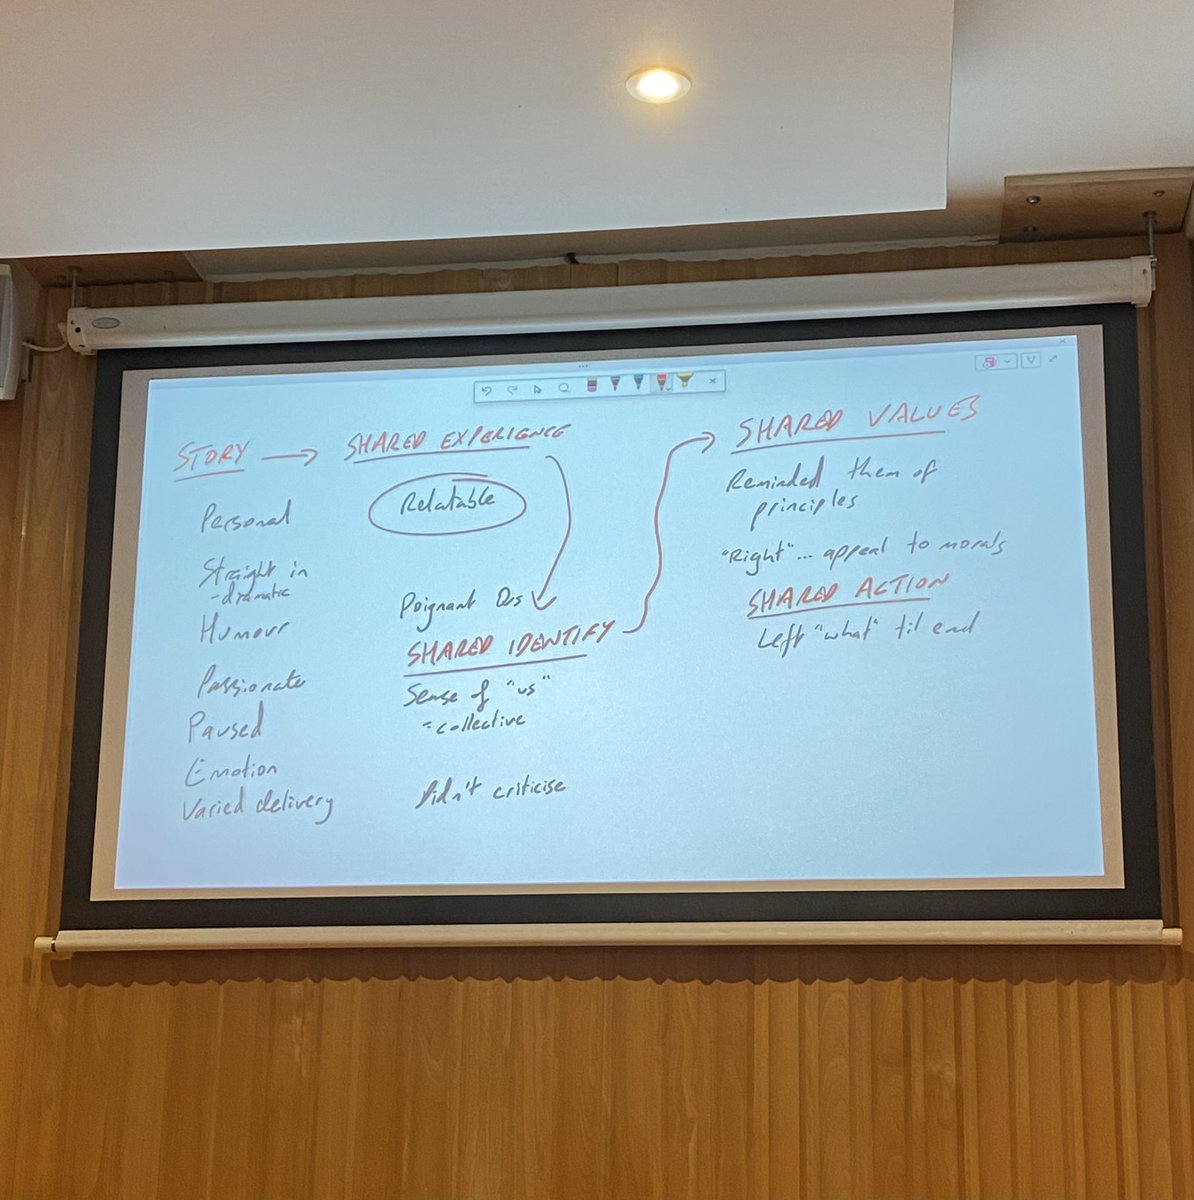 STORY
Personal
Straight in
- dramatic
Humour
Passionate
Paused
Emotion
Varied delivery
SHARED EXPERIENCE
Relatable
Poignant Qs
SHARED IDENTIFY
Sense of "us"
= collective
Didn't criticise
SHARED VALUES
Reminded them of
principles
"Right"... appeal to morals
SHARED ACTION
Left "what" til end